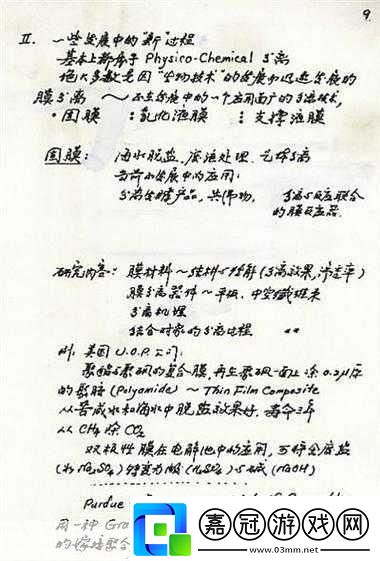 9.
II. 一些发展中的"新"过程
基本上都属于 Physico-Chemical 分离
绝大多数是因"生物技术"的发展而迅速发展的
膜分离 ～ 正在发展中的一个应用面广的分离技术,
· 固膜 : 乳化液膜 : 支撑液膜
固膜: 海水脱盐、废液处理、气体分离
目前正发展中的应用:
分离发酵产品, 共沸物, 分离与反应联合
的膜反应器.
研究内容: 膜材料～结构与性能(分离效果,渗透率)
膜分离器件～平板、中空纤维束
分离机理
结合对象的分离过程
例. 美国 U.O.P. 公司:
聚酰与聚砜的复合膜, 再在聚砜一面上涂 0.2μ厚
的聚胺 (Polyamide) ～ Thin Film Composite
从苦咸水和海水中脱盐效果好, 寿命三年
从 CH₄ 除 CO₂
双极性膜在电解池中的应用, 可将金属盐
(如 Na₂SO₄) 转变为酸 (H₂SO₄) 与碱 (NaOH)
Purdue
用一种 Gro
的嫁接聚合
嘉冠游戏网
www.03mm.net